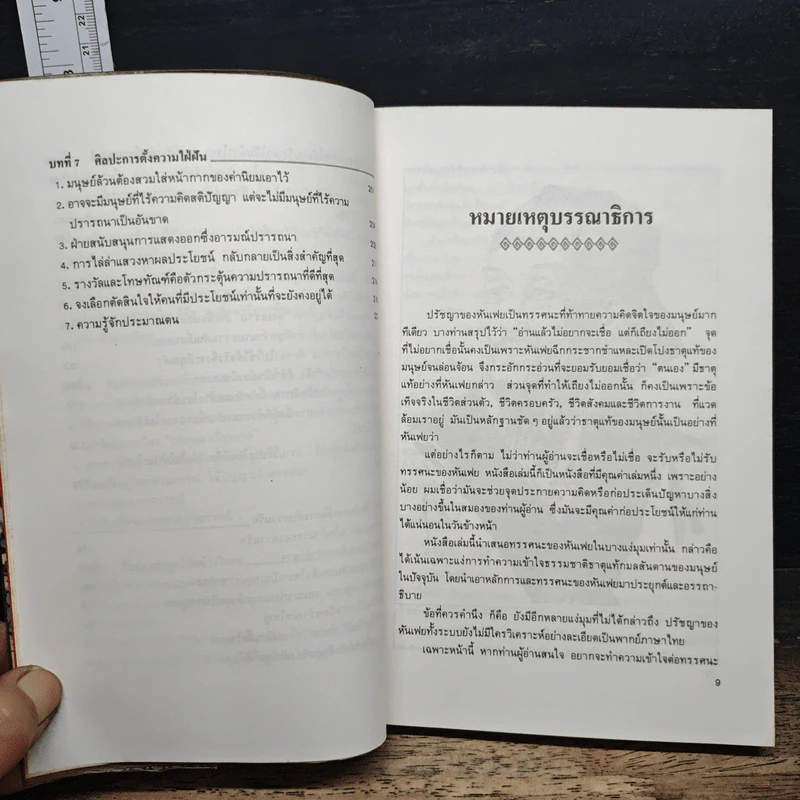 บทที่ 7 ศิลปะการตั้งความใฝ่ฝัน
1. มนุษย์ล้วนต้องสวมใส่หน้ากากของค่านิยมเอาไว้
2. อาจจะมีมนุษย์ที่ไร้ความคิดสติปัญญา แต่จะไม่มีมนุษย์ที่ไร้ความ
ปรารถนาเป็นอันขาด
3. ฝ่ายสนับสนุนการแสดงออกซึ่งอารมณ์ปรารถนา
4. การไล่ล่าแสวงหาผลประโยชน์ กลับกลายเป็นสิ่งสำคัญที่สุด
5. รางวัลและโทษทัณฑ์คือตัวกระตุ้นความปรารถนาที่ดีที่สุด
6. จงเลือกตัดสินใจให้คนที่มีประโยชน์เท่านั้นที่จะยังคงอยู่ได้
7. ความรู้จักประมาณตน
หมายเหตุบรรณาธิการ
ปรัชญาของหันเฟยเป็นทรรศนะที่ท้าทายความคิดจิตใจของมนุษย์มาก
ทีเดียว บางท่านสรุปไว้ว่า "อ่านแล้วไม่อยากจะเชื่อ แต่ก็เถียงไม่ออก" จุด
ที่ไม่อยากเชื่อนั้นคงเป็นเพราะหันเฟยฉีกกระชากชำแหละเปิดโปงธาตุแท้ของ
มนุษย์จนล่อนจ้อน จึงกระอักกระอ่วนที่จะยอมรับยอมเชื่อว่า "ตนเอง" มีธาตุ
แท้อย่างที่หันเฟยกล่าว ส่วนจุดที่ทำให้เถียงไม่ออกนั้น ก็คงเป็นเพราะข้อ
เท็จจริงในชีวิตส่วนตัว, ชีวิตครอบครัว, ชีวิตสังคมและชีวิตการงาน ที่แวด
ล้อมเราอยู่ มันเป็นหลักฐานชัด ๆ อยู่แล้วว่าธาตุแท้ของมนุษย์นั้นเป็นอย่างที่
หันเฟยว่า
แต่อย่างไรก็ตาม ไม่ว่าท่านผู้อ่านจะเชื่อหรือไม่เชื่อ จะรับหรือไม่รับ
ทรรศนะของหันเฟย หนังสือเล่มนี้ก็เป็นหนังสือที่มีคุณค่าเล่มหนึ่ง เพราะอย่าง
น้อย ผมเชื่อว่ามันจะช่วยจุดประกายความคิดหรือก่อประเด็นปัญหาบางสิ่ง
บางอย่างขึ้นในสมองของท่านผู้อ่าน ซึ่งมันจะมีคุณค่าก่อประโยชน์ให้แก่ท่าน
ได้แน่นอนในวันข้างหน้า
หนังสือเล่มนี้นำเสนอทรรศนะของหันเฟยในบางแง่มุมเท่านั้น กล่าวคือ
ได้เน้นเฉพาะแง่การทำความเข้าใจธรรมชาติธาตุแท้กมลสันดานของมนุษย์
ในปัจจุบัน โดยนำเอาหลักการและทรรศนะของหันเฟยมาประยุกต์และอรรถา-
ธิบาย
ข้อที่ควรคำนึง ก็คือ ยังมีอีกหลายแง่มุมที่ไม่ได้กล่าวถึง ปรัชญาของ
หันเฟยทั้งระบบยังไม่มีใครวิเคราะห์อย่างละเอียดเป็นพากย์ภาษาไทย
เฉพาะหน้านี้ หากท่านผู้อ่านสนใจ อยากจะทำความเข้าใจต่อทรรศนะ
9